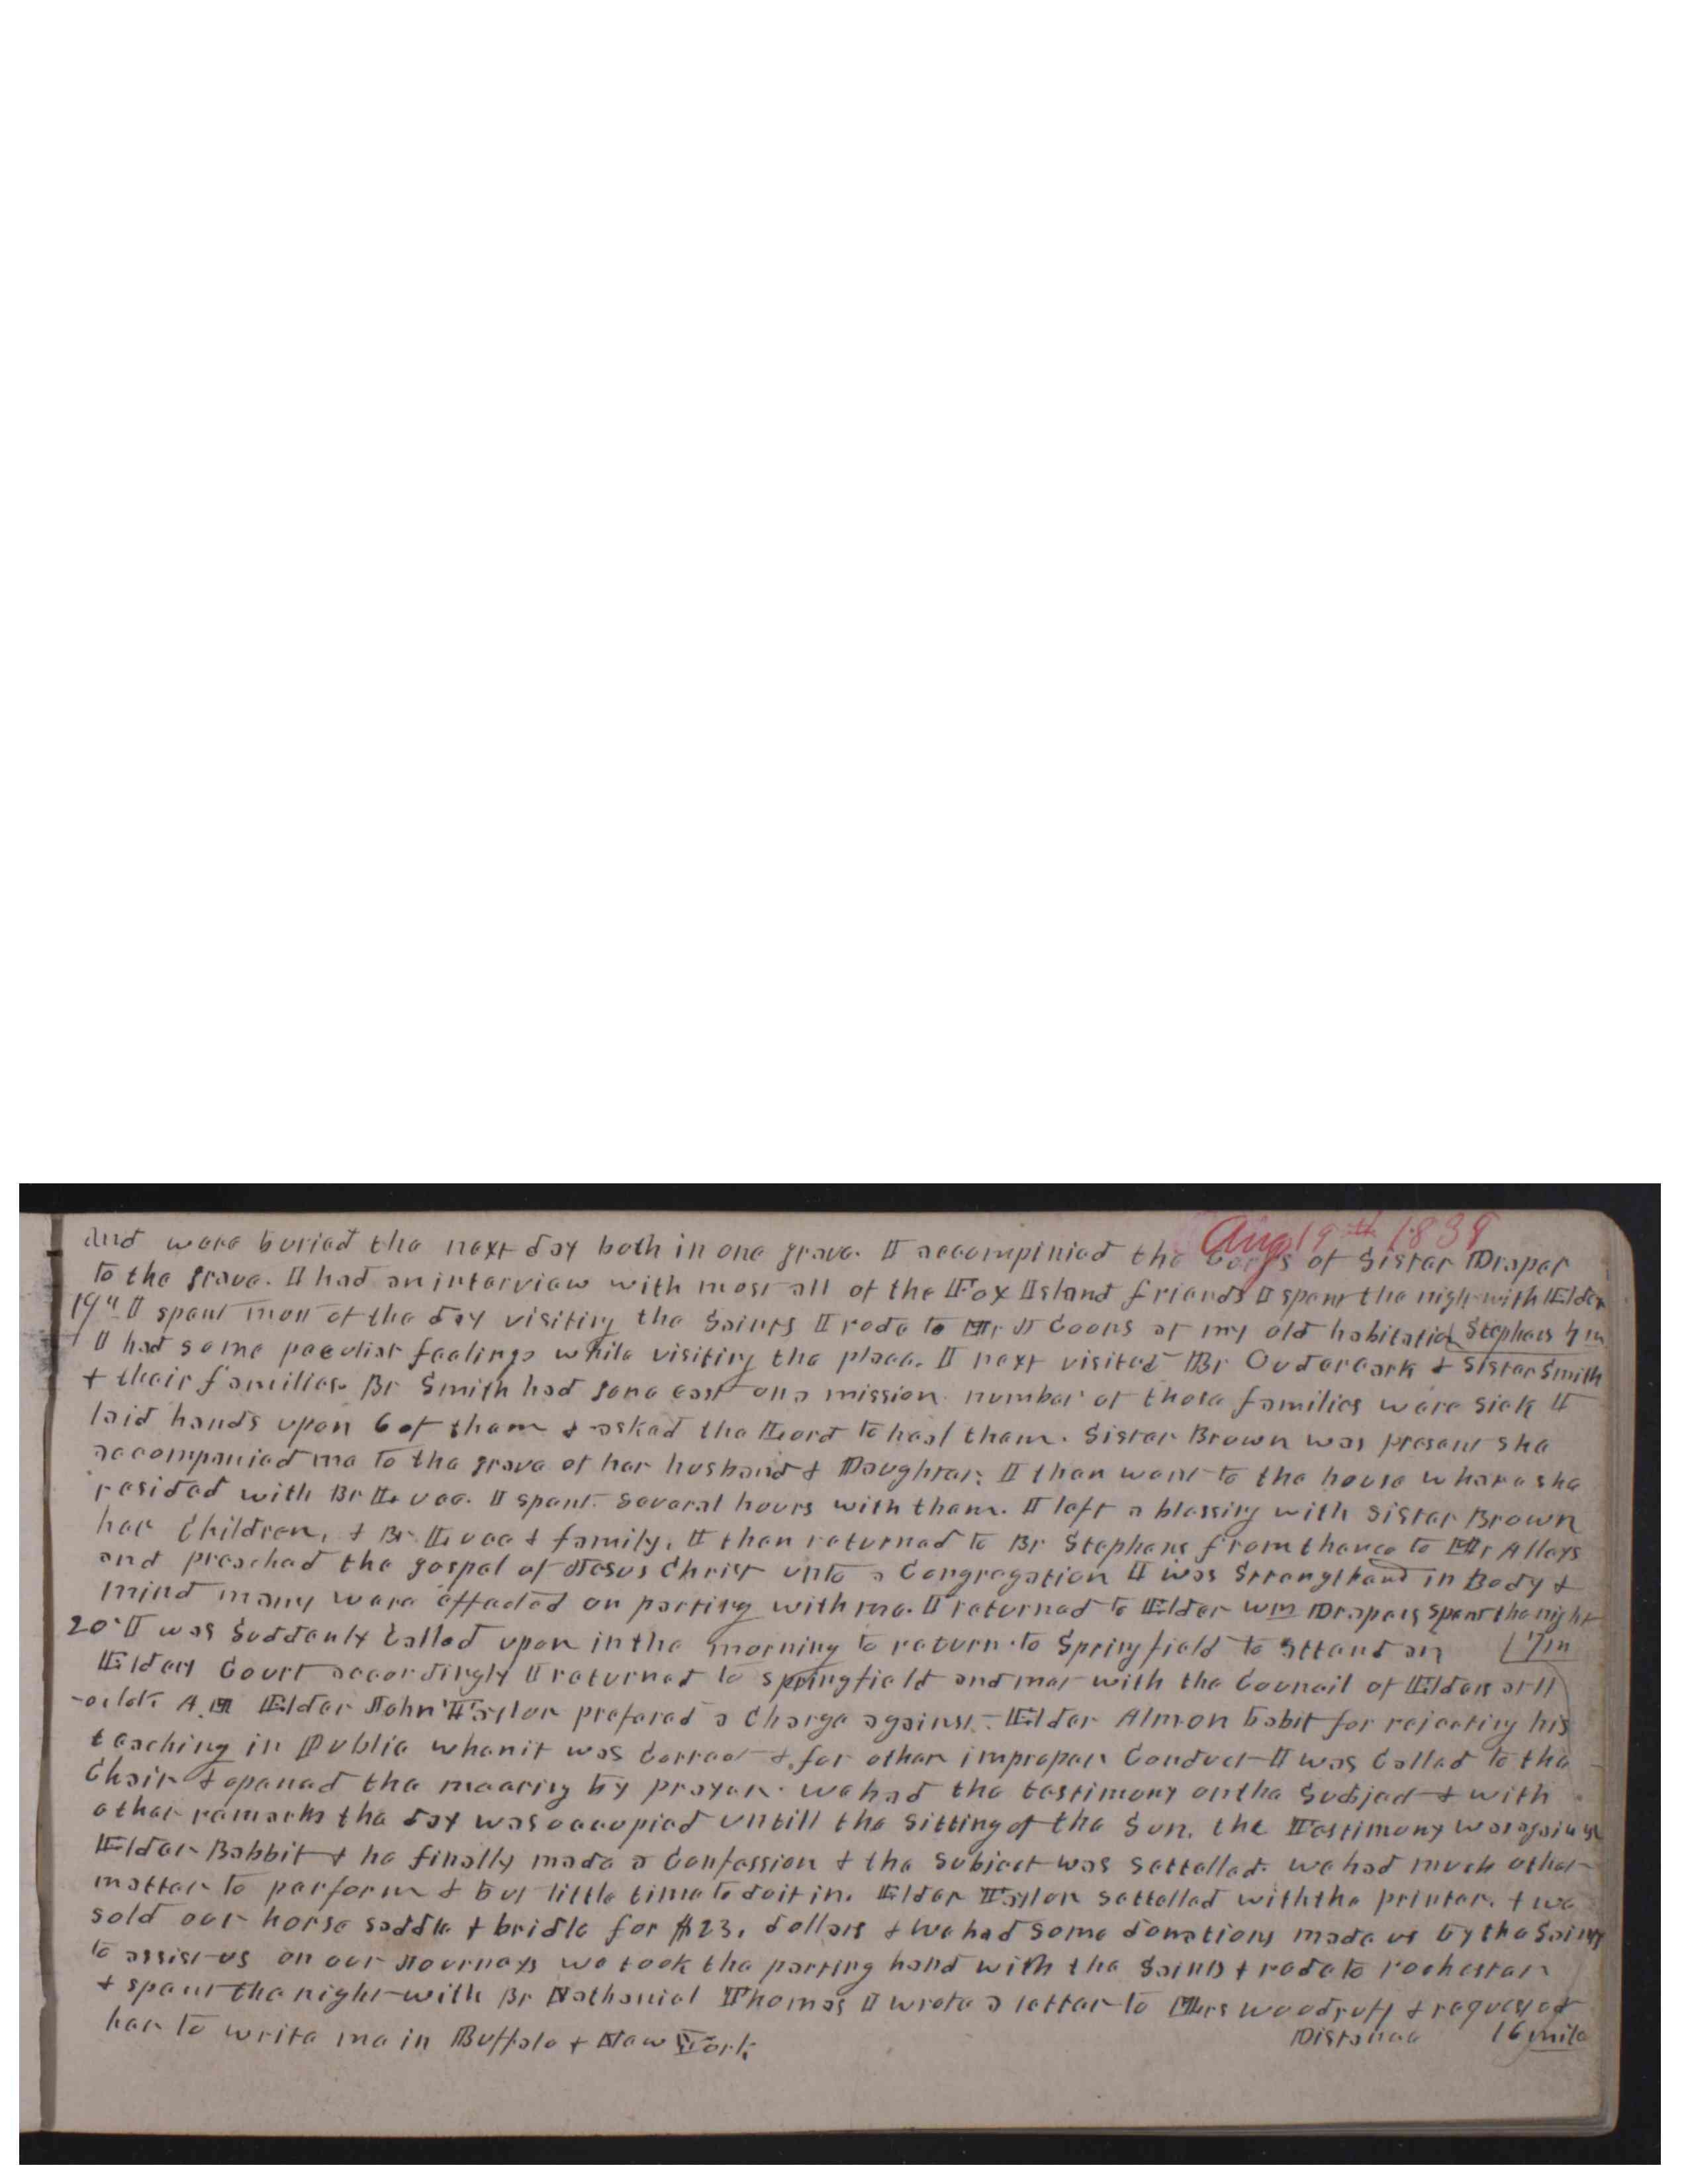 Aug 19th 1839
and were buried the next day both in one grave. I accompinied the Corps of Sister Draper
to the grave. I had an interview with most all of the Fox Island friends I spent the nigh with Elder
Stephens 4 m
19th I spent most of the day visiting the Saints I rode to Mr J Coons at my old habitation
I had some peculiar feelings while visiting the place. I next visited Br Ouderkark & Sister Smith
& their families. Br Smith had gone east on a mission number of those families were sick I
laid hands upon 6 of them & asked the Lord to heal them. Sister Brown was present she
accompanied me to the grave of her husband & Daughter. I then went to the house where she
resided with Br Luce. I spent several hours with them. I left a blessing with Sister Brown
her Children, & Br Luce & family. I then returned to Br Stephens from thence to Mr Alleys
and preached the gospel of Jesus Christ unto a Congregation I was Strengthend in Body &
mind many were effected on parting with me. I returned to Elder Wm Drapers spent the night
7 m
20th I was Suddenly Called upon in the morning to return to Springfield to attend an
Elders Court accordingly I returned to Springfield and met with the Council of Elders at 11
-oclok A.M Elder John Taylor prefered a Charge against Elder Almon Babit for rejecting his
teaching in Public when it was Correct & for other improper Conduct I was Called to the
Chair & opened the meeting by prayer. we had the testimony on the Subject & with
other remarks the day was occupied untill the Sitting of the Sun. the Testimony was against
Elder Babbit & he finally made a Confession & the Subject was settelled. we had much other
matter to perform & but little time to do it in. Elder Taylor settelled with the printer. & we
sold our horse saddle & bridle for $23. dollars & we had some donations made us by the Saints
to assist us on our Journeys we took the parting hand with the Saints & rode to rochester
& spent the night with Br Nathaniel Thomas I wrote a letter to Mrs Woodruff & requested
her to write me in Buffalo & New York
Distance 16 mile